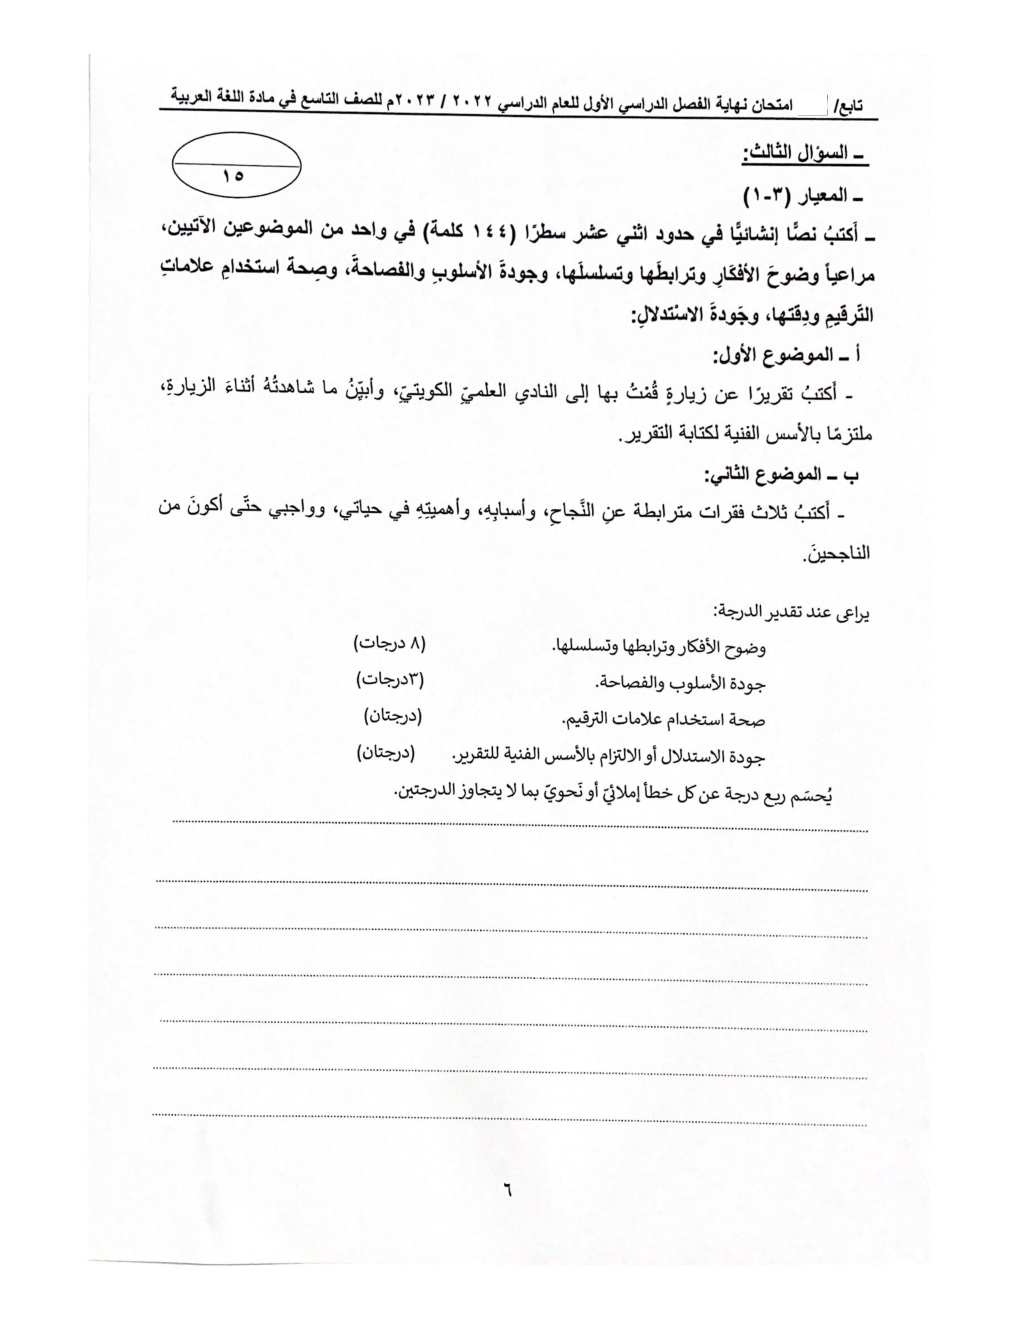 تابع/ امتحان نهاية الفصل الدراسي الأول للعام الدراسي ٢٠٢٢ / ٢٠٢٣م للصف التاسع في مادة اللغة العربية
ـ السؤال الثالث:
١٥
ـ المعيار (٣-١)
ـ أكتبُ نصًّا إنشائيًّا في حدود اثني عشر سطرًا (١٤٤ كلمة) في واحد من الموضوعين الآتيين،
مراعياً وضوحَ الأفكارِ وترابطَها وتسلسلَها، وجودةَ الأسلوبِ والفصاحةَ، وصِحةَ استخدامِ علاماتِ
التَّرقيمِ ودِقتها، وجَودةَ الاسْتدلالِ:
أ ـ الموضوع الأول:
- أكتبُ تقريرًا عن زيارةٍ قُمْتُ بها إلى النادي العلميّ الكويتيّ، وأبيِّنُ ما شاهدتُهُ أثناءَ الزيارةِ،
ملتزمًا بالأسس الفنية لكتابة التقرير.
ب ـ الموضوع الثاني:
- أكتبُ ثلاث فقرات مترابطة عنِ النَّجاحِ، وأسبابِهِ، وأهميتِهِ في حياتي، وواجبي حتَّى أكونَ من
الناجحينَ.
يراعى عند تقدير الدرجة:
وضوح الأفكار وترابطها وتسلسلها. (٨ درجات)
جودة الأسلوب والفصاحة. (٣درجات)
صحة استخدام علامات الترقيم. (درجتان)
جودة الاستدلال أو الالتزام بالأسس الفنية للتقرير. (درجتان)
يُحسَم ربع درجة عن كل خطأ إملائيّ أو نَحويّ بما لا يتجاوز الدرجتين.
٦